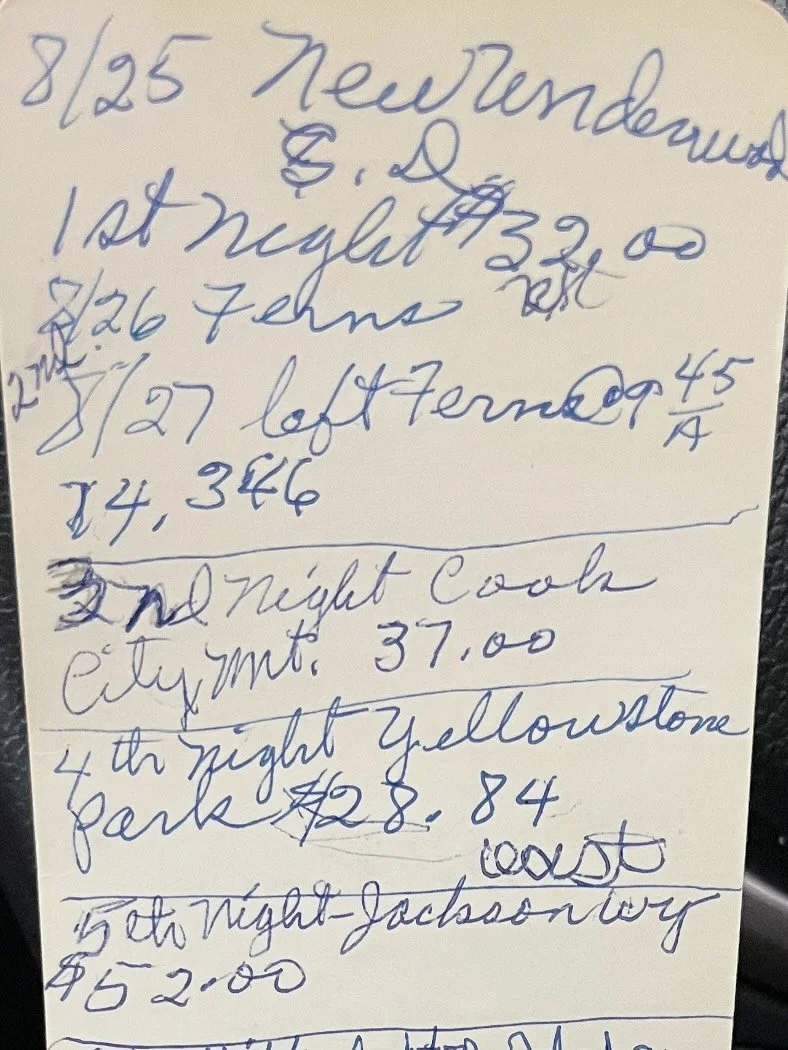 8/25 New Underwood
S.D.
1st night $32.00
8/26 Ferns rest
2nd
8/27 left Ferns @ 9 45/A
14,346
2nd Night Cook
City, Mt. 37.00
4th night Yellowstone
Park $28.84
west
5th Night-Jackson Wy
$52.00